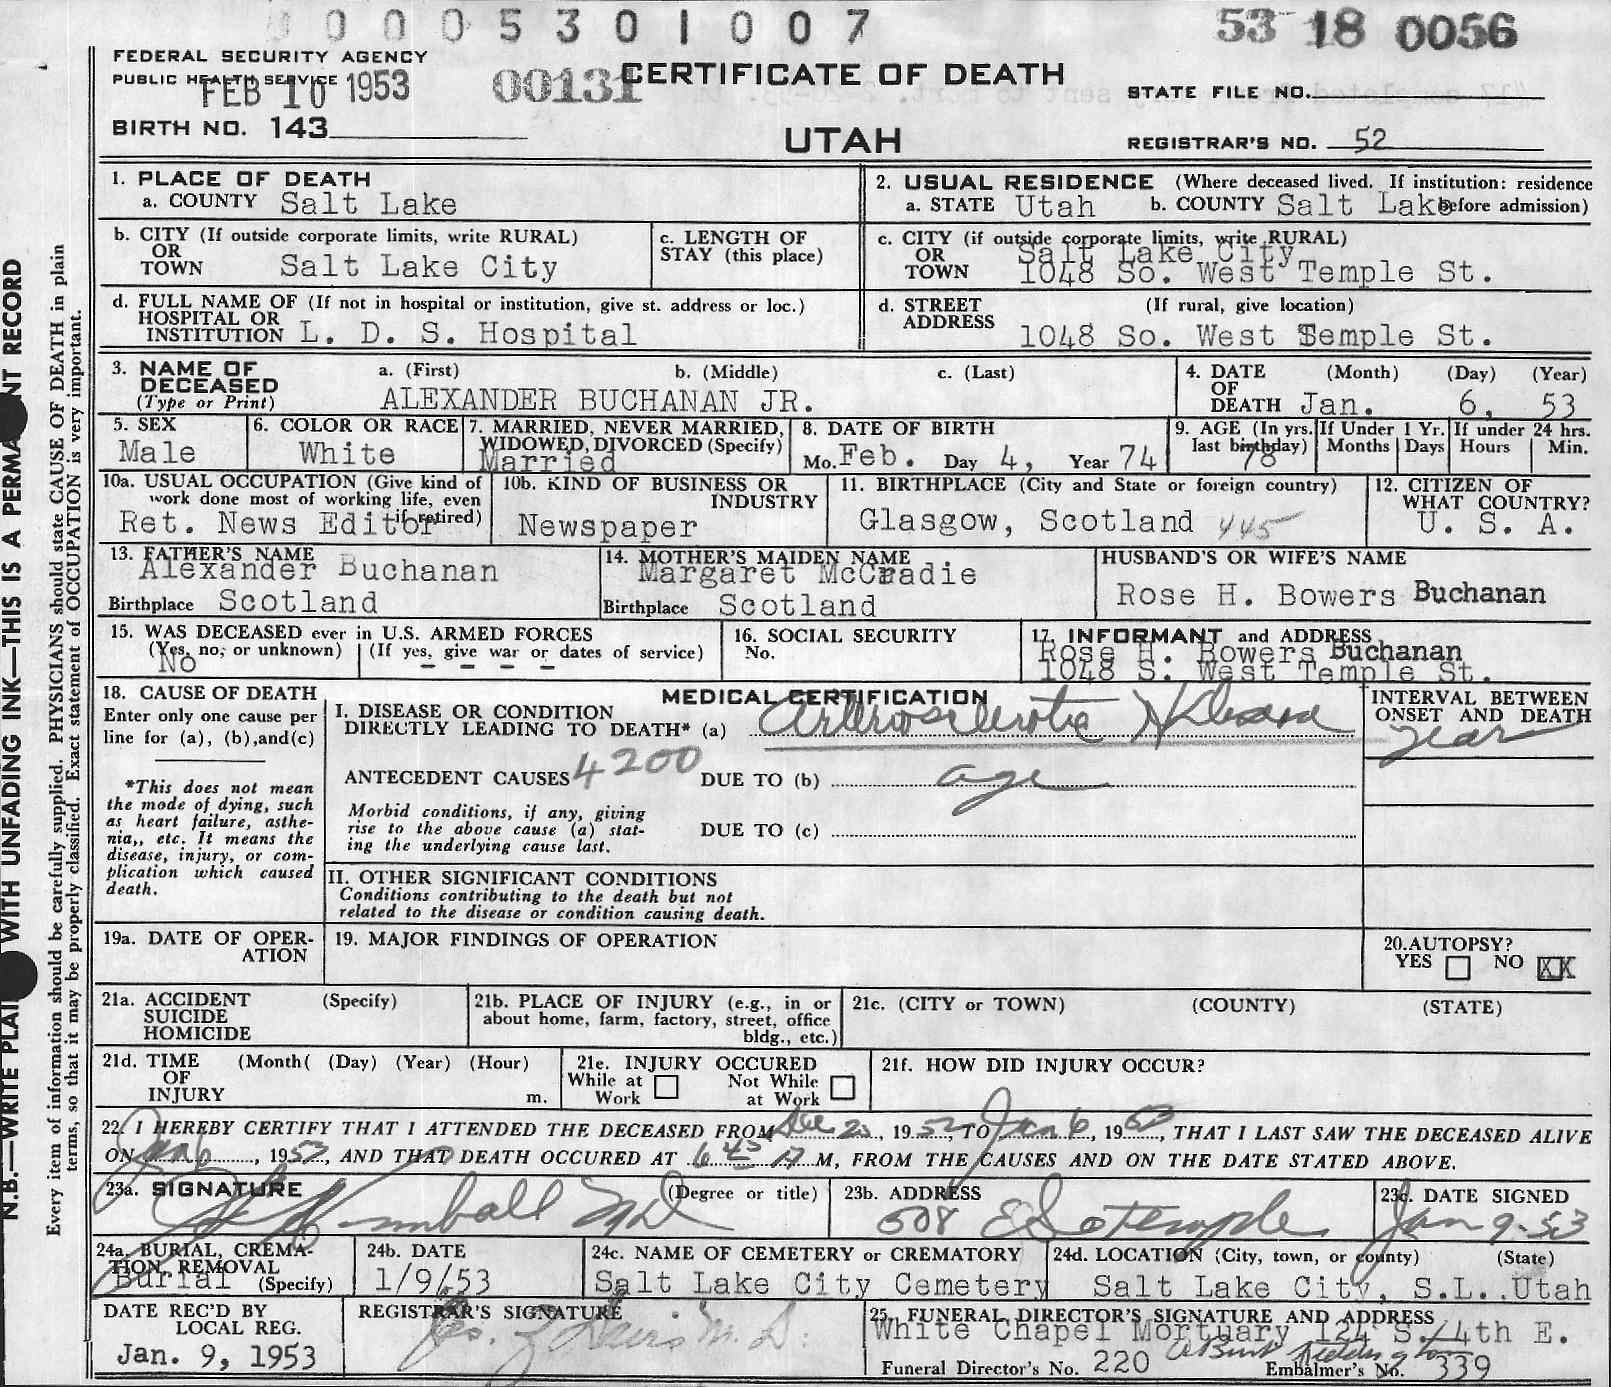 0005301007
53 18 0056
FEDERAL SECURITY AGENCY
PUBLIC HEALTH SERVICE
FEB 10 1953
00131
CERTIFICATE OF DEATH
STATE FILE NO.
BIRTH NO. 143
UTAH
REGISTRAR'S NO. 52
1. PLACE OF DEATH
a. COUNTY Salt Lake
2. USUAL RESIDENCE (Where deceased lived. If institution: residence
a. STATE Utah b. COUNTY Salt Lake before admission)
b. CITY (If outside corporate limits, write RURAL)
OR
TOWN Salt Lake City
c. LENGTH OF
STAY (this place)
c. CITY (if outside corporate limits, write RURAL)
OR Salt Lake City
TOWN 1048 So. West Temple St.
d. FULL NAME OF (If not in hospital or institution, give st. address or loc.)
HOSPITAL OR
INSTITUTION L. D. S. Hospital
d. STREET (If rural, give location)
ADDRESS
1048 So. West Temple St.
3. NAME OF a. (First) b. (Middle) c. (Last)
DECEASED
(Type or Print) ALEXANDER BUCHANAN JR.
4. DATE (Month) (Day) (Year)
OF
DEATH Jan. 6, 53
5. SEX
Male
6. COLOR OR RACE
White
7. MARRIED, NEVER MARRIED,
WIDOWED, DIVORCED (Specify)
Married
8. DATE OF BIRTH
Mo. Feb. Day 4, Year 74
9. AGE (In yrs.
last birthday)
78
If Under 1 Yr.
Months Days
If under 24 hrs.
Hours Min.
10a. USUAL OCCUPATION (Give kind of
work done most of working life, even
if retired)
Ret. News Editor
10b. KIND OF BUSINESS OR
INDUSTRY
Newspaper
11. BIRTHPLACE (City and State or foreign country)
Glasgow, Scotland 445
12. CITIZEN OF
WHAT COUNTRY?
U. S. A.
13. FATHER'S NAME
Alexander Buchanan
Birthplace Scotland
14. MOTHER'S MAIDEN NAME
Margaret McCradie
Birthplace Scotland
HUSBAND'S OR WIFE'S NAME
Rose H. Bowers Buchanan
15. WAS DECEASED ever in U.S. ARMED FORCES
(Yes, no, or unknown) (If yes, give war or dates of service)
No - - - -
16. SOCIAL SECURITY
No.
17. INFORMANT and ADDRESS
Rose H. Bowers Buchanan
1048 S. West Temple St.
18. CAUSE OF DEATH
Enter only one cause per
line for (a), (b), and (c)
*This does not mean
the mode of dying, such
as heart failure, asthe-
nia,, etc. It means the
disease, injury, or com-
plication which caused
death.
MEDICAL CERTIFICATION
I. DISEASE OR CONDITION
DIRECTLY LEADING TO DEATH* (a) Arteriosclerotic H Disease
INTERVAL BETWEEN
ONSET AND DEATH
Years
ANTECEDENT CAUSES 4200 DUE TO (b) age
Morbid conditions, if any, giving
rise to the above cause (a) stat-
ing the underlying cause last.
DUE TO (c)
II. OTHER SIGNIFICANT CONDITIONS
Conditions contributing to the death but not
related to the disease or condition causing death.
19a. DATE OF OPER-
ATION
19. MAJOR FINDINGS OF OPERATION
20. AUTOPSY?
YES NO XX
21a. ACCIDENT (Specify)
SUICIDE
HOMICIDE
21b. PLACE OF INJURY (e.g., in or
about home, farm, factory, street, office
bldg., etc.)
21c. (CITY or TOWN) (COUNTY) (STATE)
21d. TIME (Month( (Day) (Year) (Hour)
OF
INJURY m.
21e. INJURY OCCURED
While at Work Not While at Work
21f. HOW DID INJURY OCCUR?
22. I HEREBY CERTIFY THAT I ATTENDED THE DECEASED FROM Dec 20, 1952, TO Jan 6, 1953, THAT I LAST SAW THE DECEASED ALIVE
ON Jan 6, 1953, AND THAT DEATH OCCURED AT 6 45 A M, FROM THE CAUSES AND ON THE DATE STATED ABOVE.
23a. SIGNATURE (Degree or title)
Kimball MD
23b. ADDRESS
508 E So Temple
23c. DATE SIGNED
Jan 9-53
24a. BURIAL, CREMA-
TION, REMOVAL
Burial (Specify)
24b. DATE
1/9/53
24c. NAME OF CEMETERY or CREMATORY
Salt Lake City Cemetery
24d. LOCATION (City, town, or county) (State)
Salt Lake City, S.L. Utah
DATE REC'D BY
LOCAL REG.
Jan. 9, 1953
REGISTRAR'S SIGNATURE
M. D.
25. FUNERAL DIRECTOR'S SIGNATURE AND ADDRESS
White Chapel Mortuary 124 S. 4th E.
Funeral Director's No. 220 Embalmer's No. 339
N.B.—WRITE PLAI WITH UNFADING INK—THIS IS A PERMA NT RECORD
Every item of information should be carefully supplied. PHYSICIANS should state CAUSE OF DEATH in plain
terms, so that it may be properly classified. Exact statement of OCCUPATION is very important.